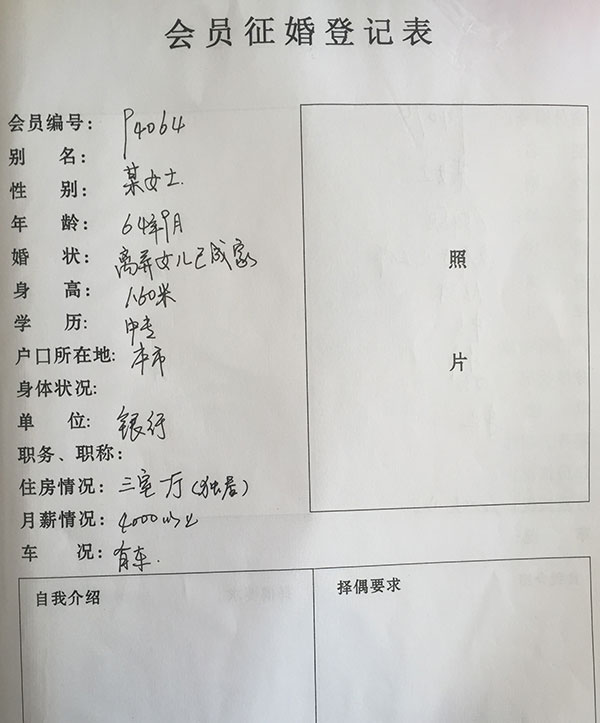 会员征婚登记表
会员编号: P4064
别 名:
性 别: 某女士.
年 龄: 64年9月
婚 状: 离异女儿已成家
身 高: 1.60米
学 历: 中专
户口所在地: 本市
身体状况:
单 位: 银行
职务、职称:
住房情况: 三室厅(独居)
月薪情况: 4000以上
车 况: 有车.
照
片
自我介绍
择偶要求